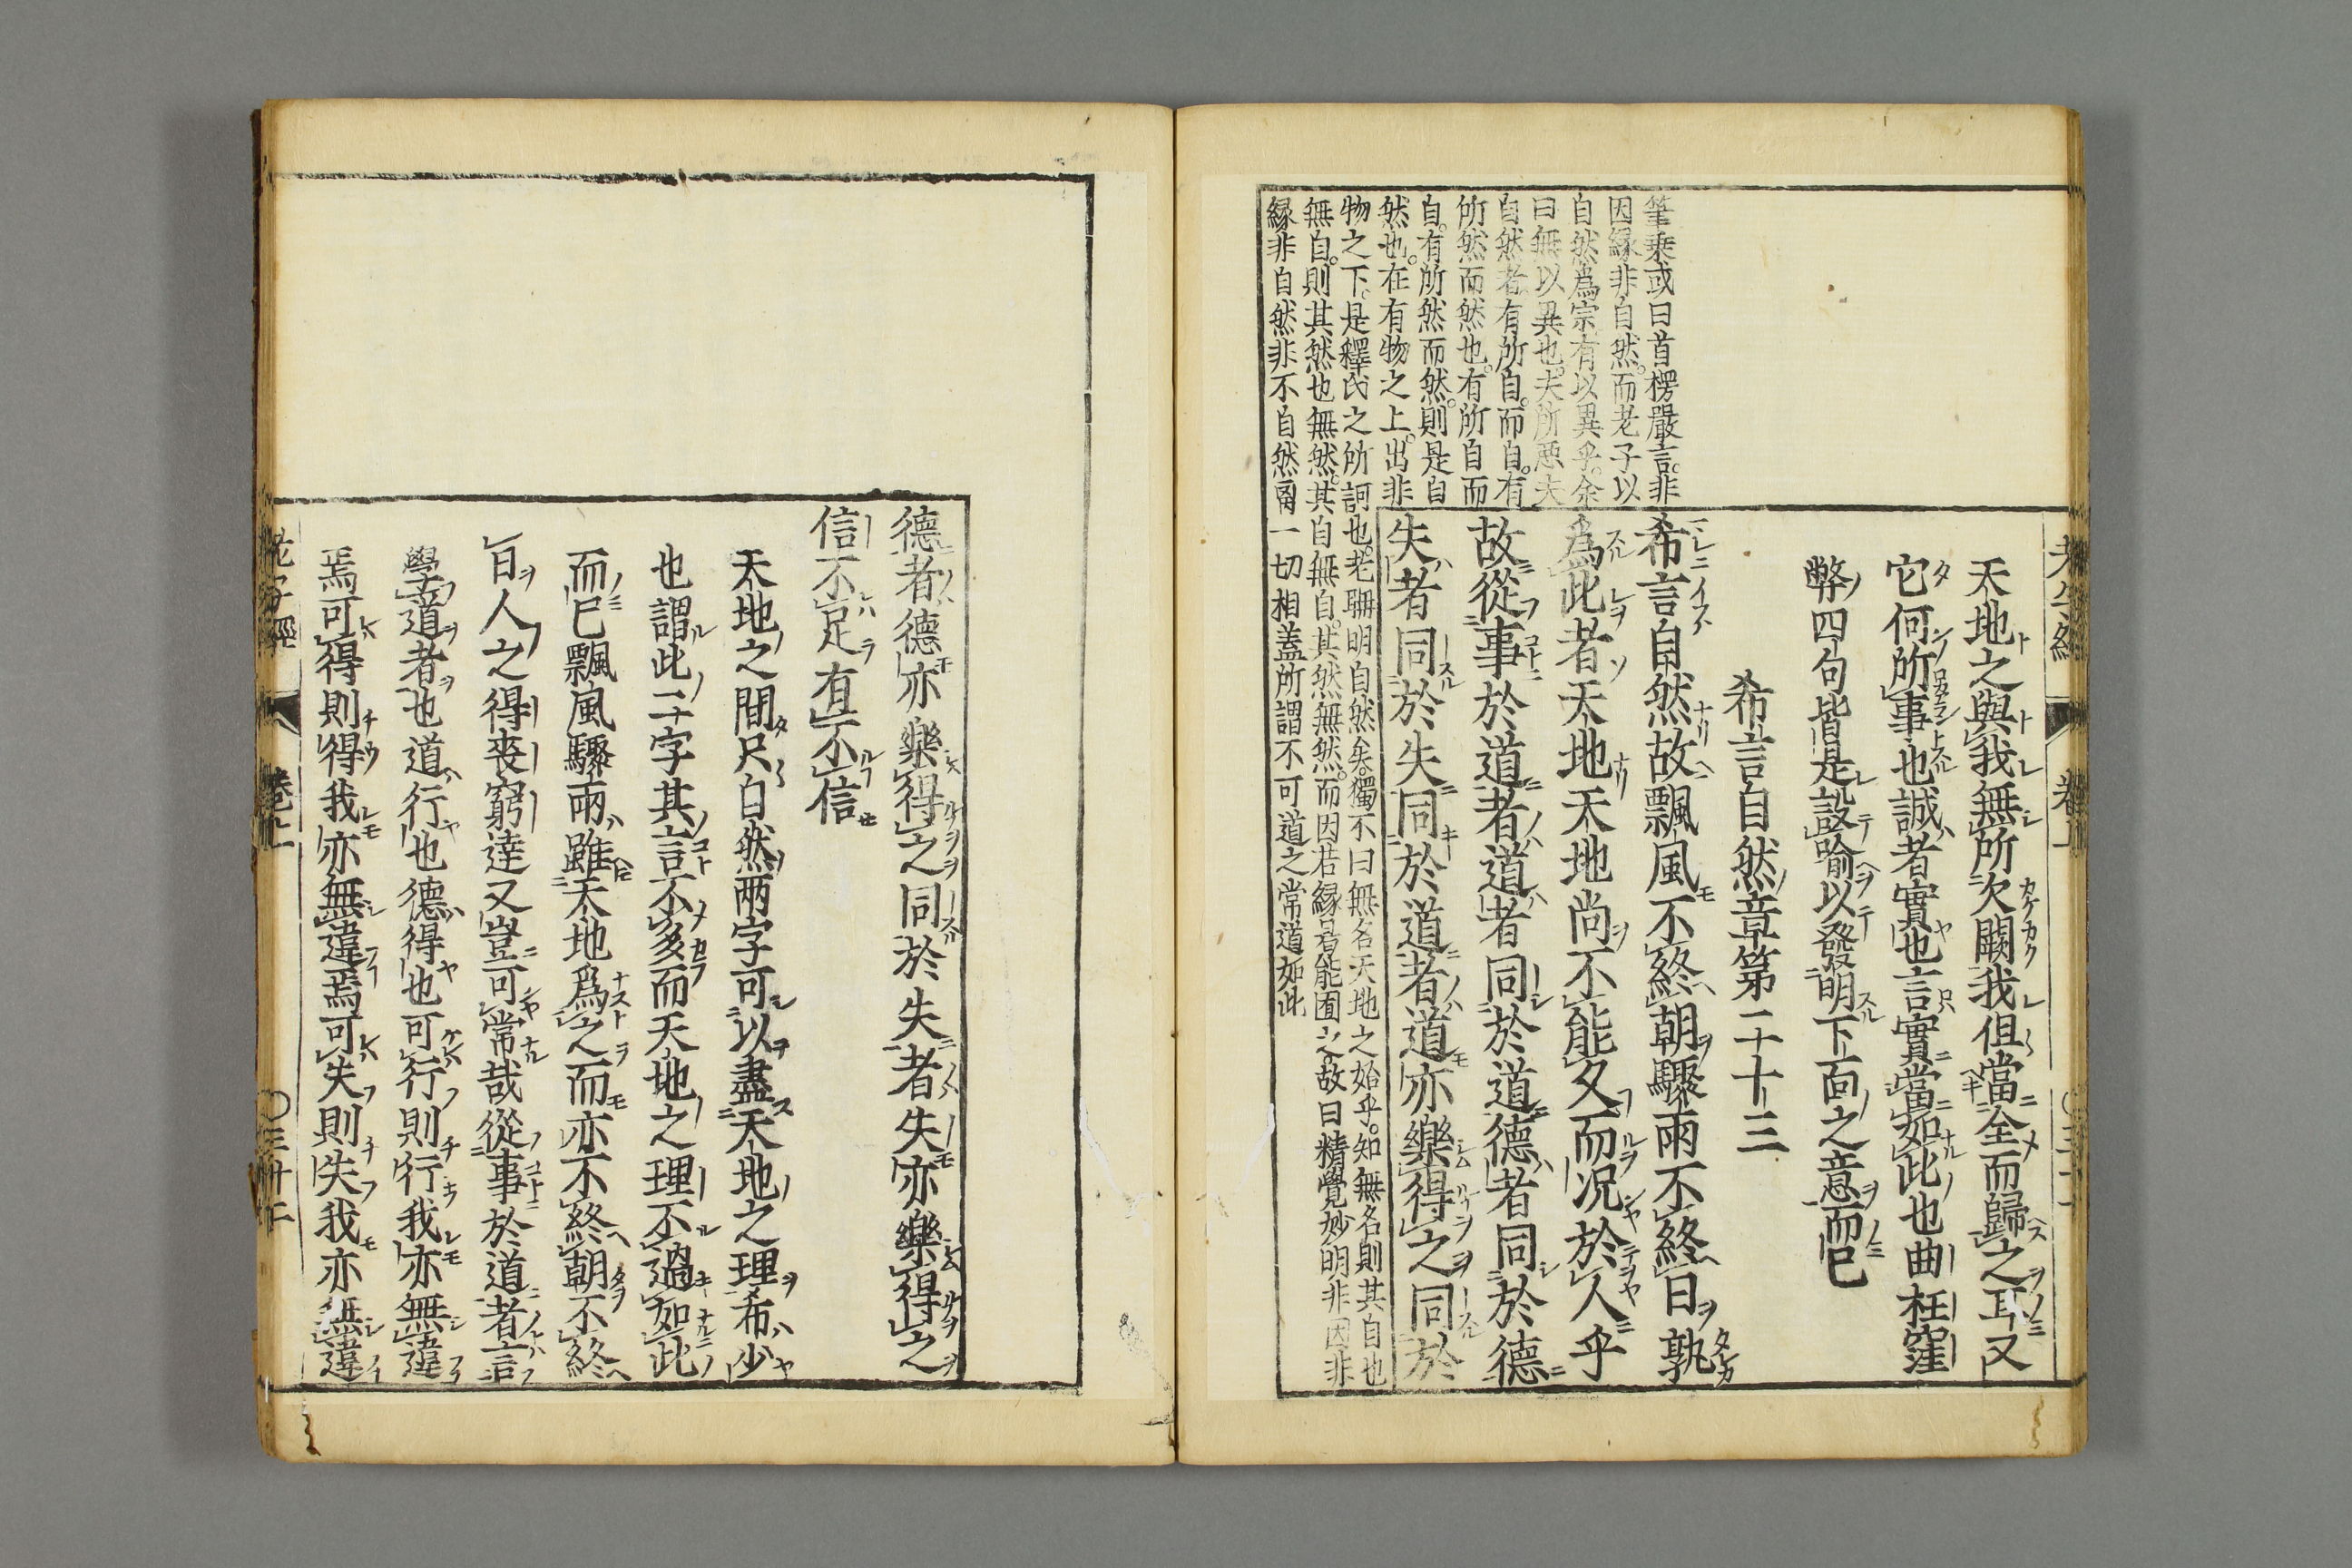 老子經 卷上 〇三十一
天地之與我無所欠闕我但當全而歸之耳又
它何所事也誠者實也言實當如此也曲枉窪
弊四句皆是設喻以發明下面之意而已
希言自然章第二十三
希言自然故飄風不終朝驟雨不終日孰
爲此者天地天地尚不能久而况於人乎
故從事於道者道者同於道德者同於德
失者同於失同於道者道亦樂得之同於
筆乗或曰首楞嚴言。非
因縁非自然。而老子以
自然爲宗有以異乎。余
曰無以異也。夫所惡夫
自然者。有所自。而自。有
所然而然也。有所自而
自。有所然而然。則是自
然也。在有物之上。出非
物之下。是釋氏之所訶也。老耼明自然矣。獨不曰無名天地之始乎。知無名則其自也
無自。則其然也無然。其自無自。其然無然。而因若縁曷能囿之。故曰精覺妙明非因非
縁非自然非不自然离一切相蓋所謂不可道之常道如此
德者德亦樂得之同於失者失亦樂得之
信不足有不信
天地之間只自然兩字可以盡天地之理希少
也謂此二字其言不多而天地之理不過如此
而已飄風驟雨雖天地爲之而亦不終朝不終
日人之得喪窮達又豈可常哉從事於道者言
學道者也道行也德得也可行則行我亦無違
焉可得則得我亦無違焉可失則失我亦無違
老子經 卷上 〇三十二